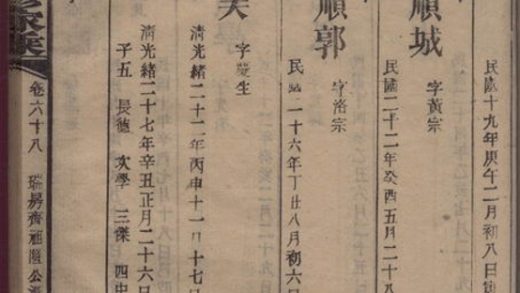 民國十九年庚午二月初八日
順城
字黃宗
民國二十二年癸酉五月二十八
順郭
字洛宗
民國二十六年丁丑八月初六
字慶生
清光緒二十二年丙申十一月十七
清光緒二十七年辛丑正月二十六日
子五 長德 次學 三傑 四
卷六十八